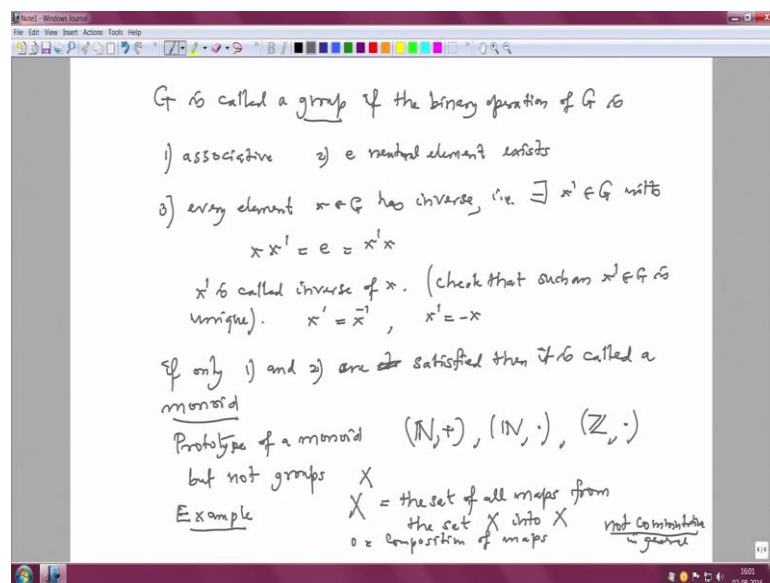 Note1 - Windows Journal
File Edit View Insert Actions Tools Help
G is called a group if the binary operation of G is
1) associative 2) e neutral element exists
3) every element x ∈ G has inverse, i.e. ∃ x' ∈ G with
x x' = e = x' x
x' is called inverse of x. (check that such an x' ∈ G is
unique). x' = x⁻¹, x' = -x
If only 1) and 2) are satisfied then it is called a
monoid
Prototype of a monoid (ℕ, +), (ℕ, ·), (ℤ, ·)
but not groups
Example X^X = the set of all maps from
the set X into X
o = composition of maps
not commutative
in general
4/4
16:01
02-08-2016